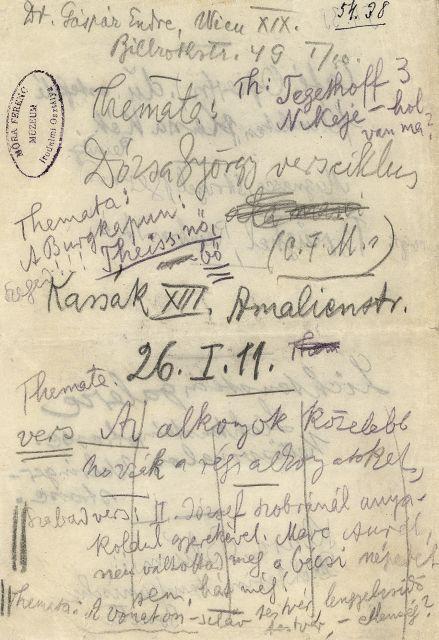 Dr. Gáspár Endre, Wien XIX.
54.38
Billrothstr. 49 I/10.
MÓRA FERENC
MÚZEUM
Irodalmi Osztálya
Themata:
Th: Tegethoff 3
Nikéjé – hol
van ma?
Dózsa György versciklus
Themata:
A Burgkapun:
Theiss: nő,
bő
(C. F. M.:)
Kassák XIII. Amalienstr.
26. I. 11.
Themata:
vers Az alkonyok közelebb
hozzák a régi alkonyatokat,
Szabadvers: II. József szobránál anya
koldul gyerekével. Marc Aurél,
nem váltottad meg a bécsi népeket
sem, hát még
Themata: A vonaton testvér, lengyel zsidó
testvér, –